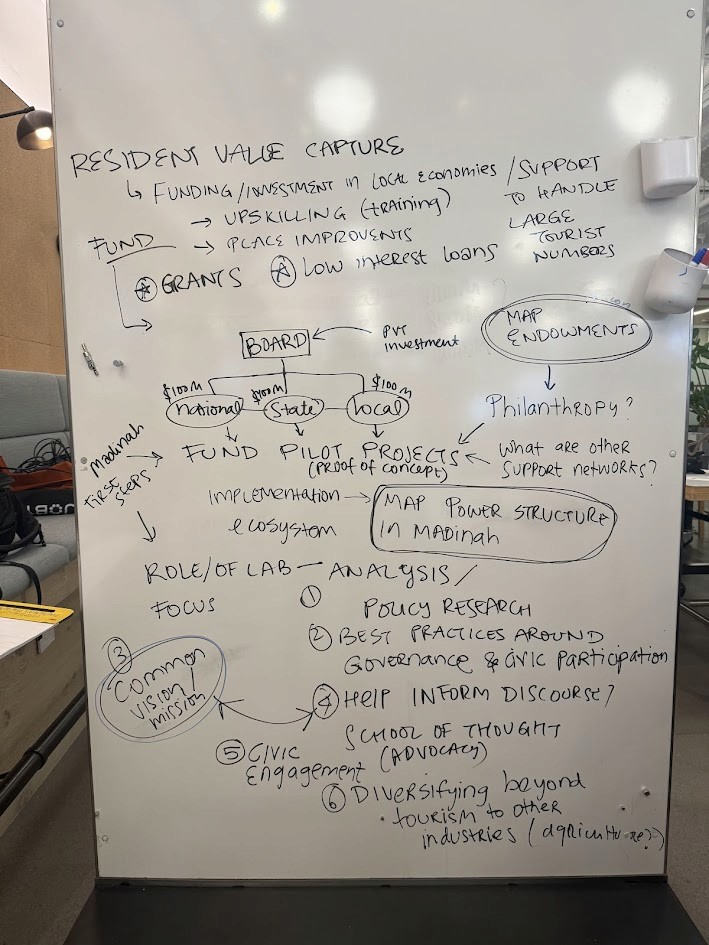 RESIDENT VALUE CAPTURE
↳ FUNDING/INVESTMENT in LOCAL Economies / SUPPORT
TO HANDLE
LARGE
TOURIST
NUMBERS
→ UPSKILLING (training)
FUND → PLACE IMPROVENTS
GRANTS
Low interest loans
BOARD
PVT
investment
MAP
ENDOWMENTS
$100M $100M $100M
national State local
Philanthropy?
Madinah
First
steps
FUND PILOT PROJECTS
(PROOF of concept)
What are other
SUPPORT networks?
implementation
ecosystem
MAP POWER STRUCTURE
in MADinah
ROLE/OF LAB — ANALYSIS/
FOCUS
① POLICY RESEARCH
② BEST PRACTICES AROUND
Governance & civic participation
③
Common
vision/
mission
④ HELP INFORM DISCOURSE?
SCHOOL OF THOUGHT
(ADVOCACY)
⑤ CIVIC
Engagement
⑥ DIVERSIFYING beyond
• tourism to other
industries (agriculture?)